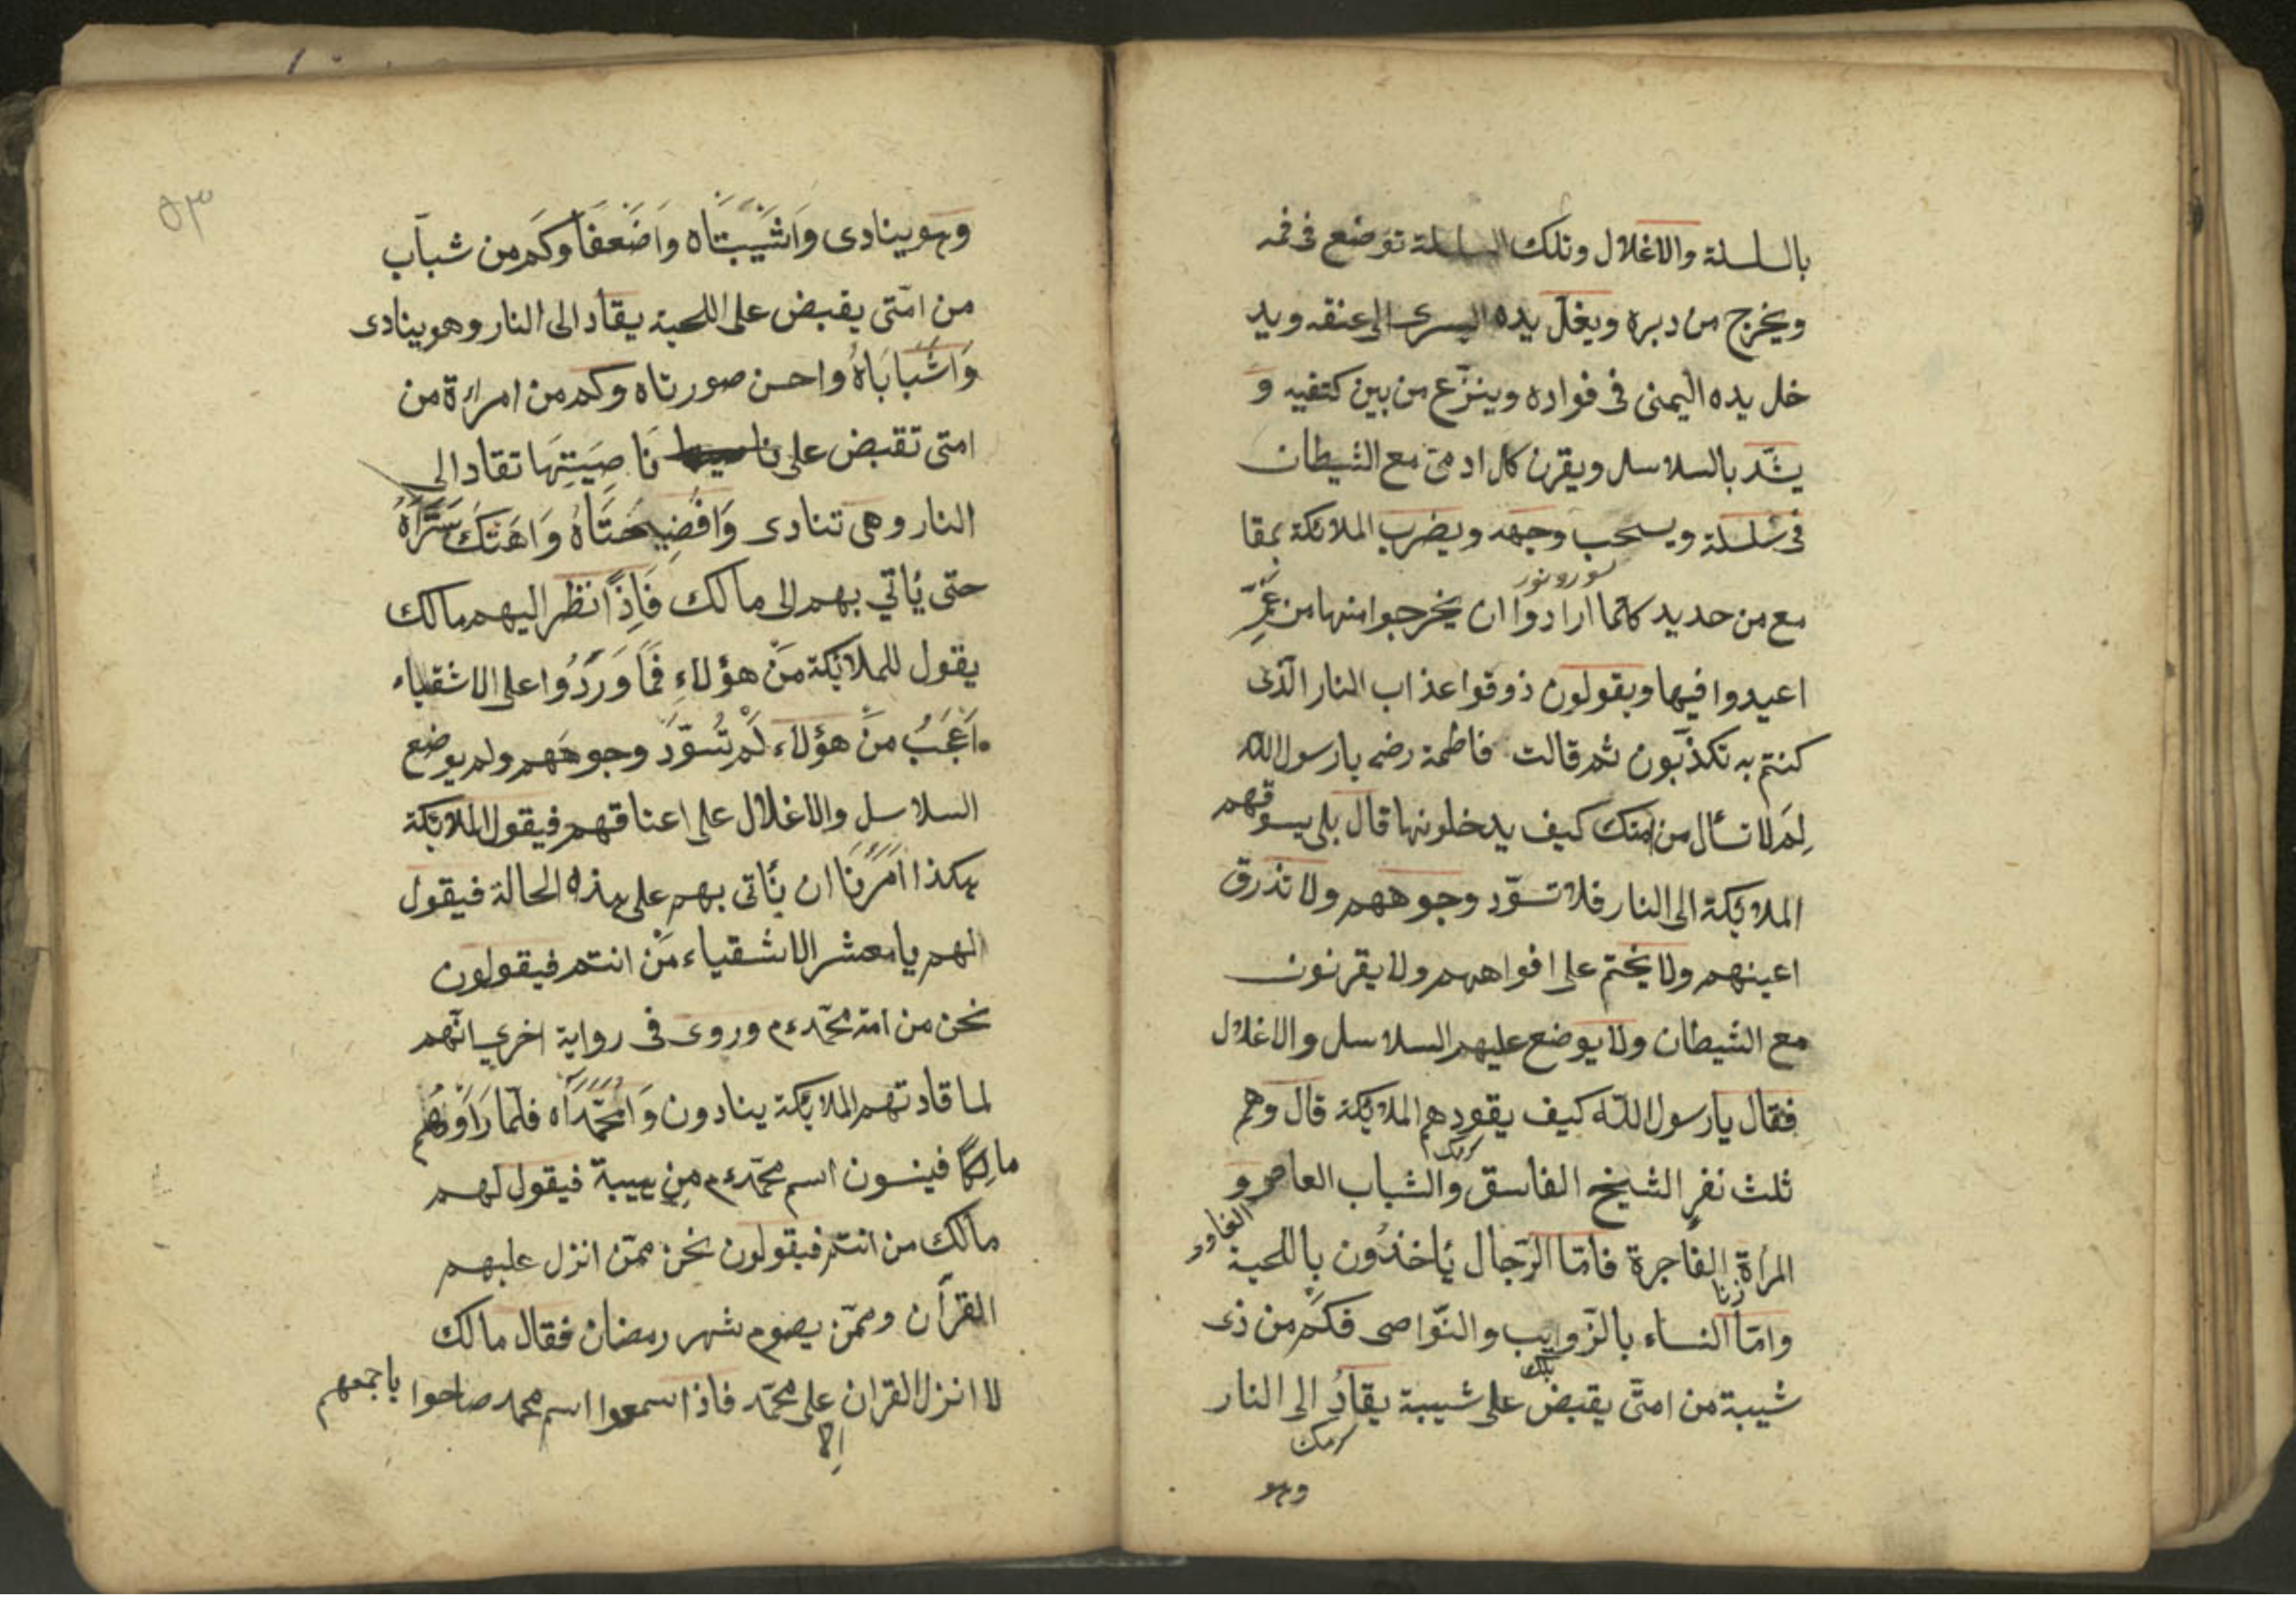 بالسلسلة والاغلال وتلك السلسلة توضع فى فمه
ويخرج من دبره ويغلّ يده اليسرى الى عنقه ويد
خل يده اليمنى فى فواده وينزع من بين كتفيه و
يشّد بالسلاسل ويقرن كل ادمىّ مع الشيطان
فى سلسلة ويسحب وجهه ويضرب الملائكة بمقا
مع من حديد كلّما ارادوا ان يخرجوا منها من غمٍّ
اعيدوا فيها ويقولون ذوقوا عذاب النار الّذى
كنتم به تكذّبون ثم قالت فاطمة رضى يا رسول الله
لِمَ لا تسأل من امتك كيف يدخلونها قال بلى يسوقهم
الملائكة الى النار فلا تسوّد وجوههم ولا تذرق
اعينهم ولا يختم على افواههم ولا يقرنون
مع الشيطان ولا يوضع عليهم السلاسل والاغلال
فقال يا رسول اللّه كيف يقودهم الملائكة قال وهم
ثلث نفرٍ الشيخ الفاسق والشباب العاصى و
المرأة الفاجرة فامّا الرّجال يأخذُون باللحية
وامّا النساء بالزّوايب والنّواصى فكَم من ذى
شيبة من امتّى يقبض على شيبة يقادُ الى النار
وهو
٥٣
وهو ينادى وَاشَيبَتاه واضَعفَا وكَم من شباب
من امّتى يقبض على اللحية يقاد الى النار وهو ينادى
وَاشَبَابَاهُ واحسن صورتاه وكم من امرأة من
امتى تقبض على نَاصِيَتِهَا تقاد الى
النار وهى تنادى وَافَضِيحَتَاهُ وَاهَتكَ سَتَرَاهُ
حتى يأتي بهم الى مالك فَاِذَا نظر اليهم مالك
يقول للملائكة مَنْ هؤلاءِ فَمَا وَرَدُوا على الاشقياء
اَعجَبُ مِنْ هؤلاء لَمْ تُسَوّدْ وجوههَم ولم يوضع
السلاسل والاغلال على اعناقهم فيقول الملائكة
هكذا اُمِرْنَا ان يأتى بهم على هذه الحالة فيقول
الهم يا معشر الاشقياء مَنْ انتم فيقولون
نحن من امة محمّدءم وروى فى رواية اخرى انّهم
لما قادتهم الملائكة ينادون وَامُحَمَّدَاه فلّما رَاَوْهُم
مالِكًا فينسون اسم محمّدءم مِن هيبة فيقول لهم
مالك من انتم فيقولون نحن ممّن انزل عليهم
القرآن وممّن يصوم شهر رمضان فقال مالك
لا انزل القران على محمّد فاذا سمعوا اسم محمد صاحوا باجمعهم
اِلا